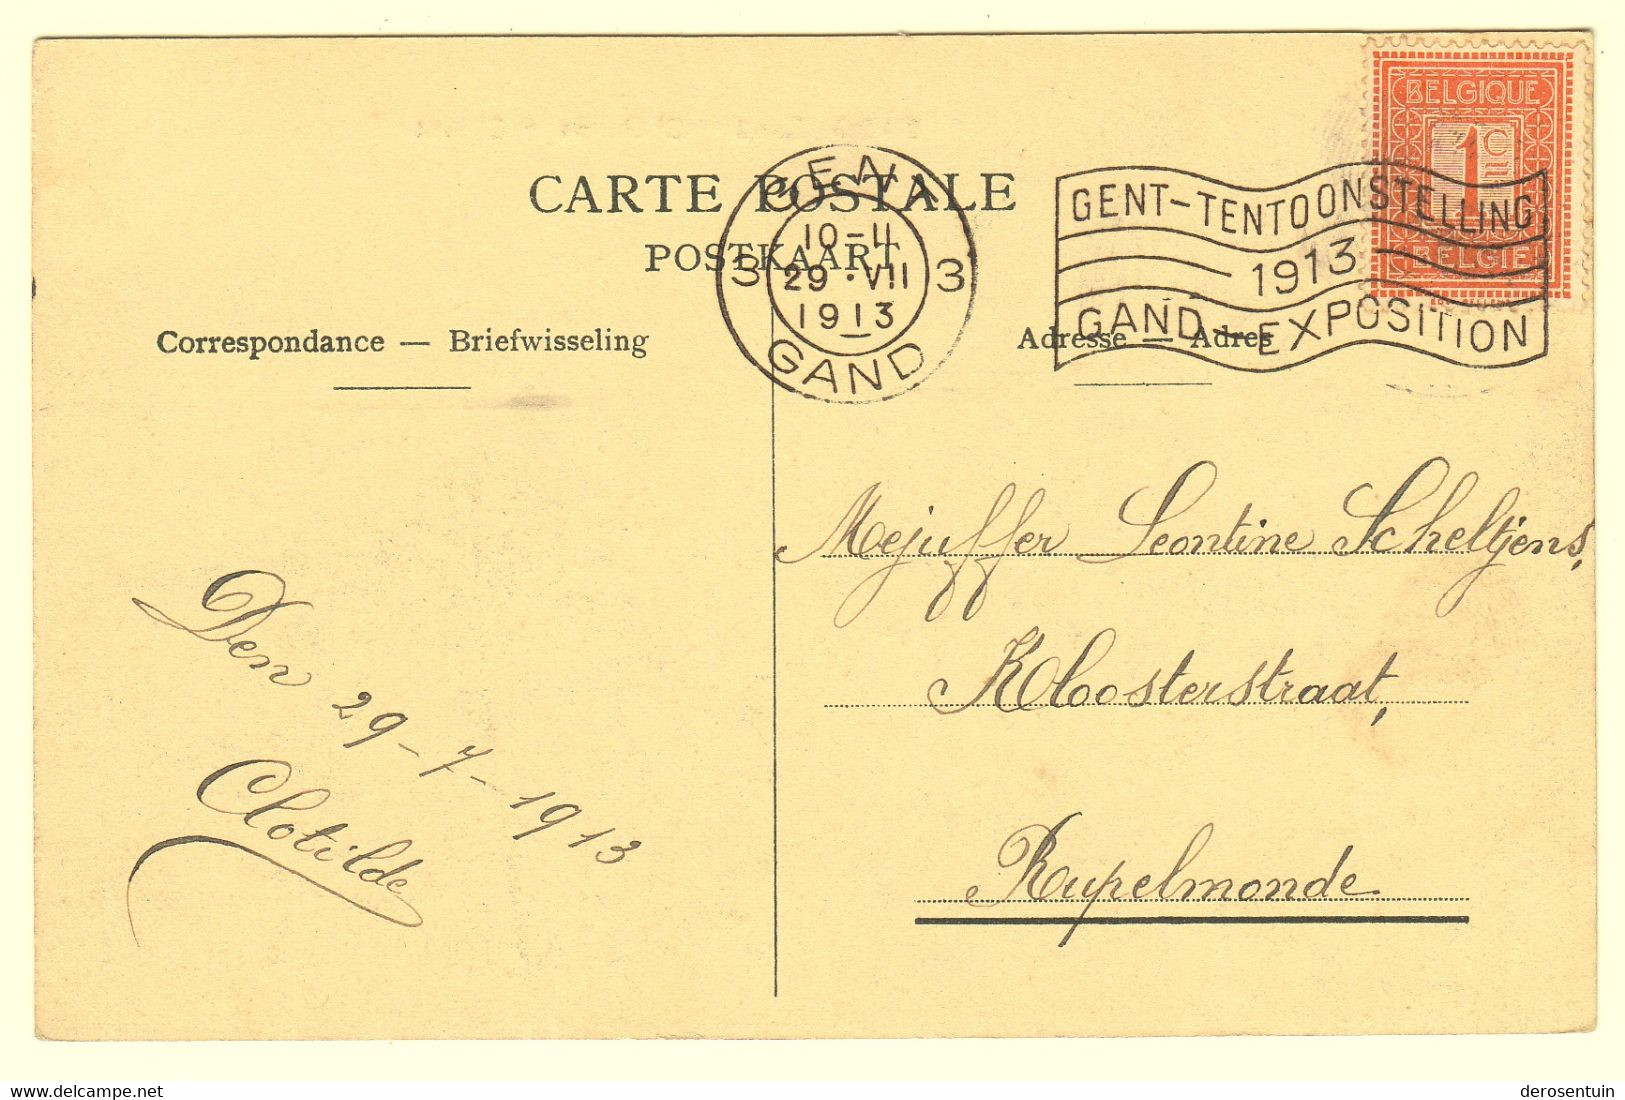 BELGIQUE
1 CE
BELGIË
CARTE POSTALE
POSTKAART
GENT
10-11
3 29 · VII 3
1913
GAND
GENT-TENTOONSTELLING
1913
GAND-EXPOSITION
Correspondance — Briefwisseling
Adresse — Adres
Mejuffer Leontine Scheltjens,
Kloosterstraat,
Rupelmonde
Den 29-7-1913
Clotilde
delcampe.net
derosentuin